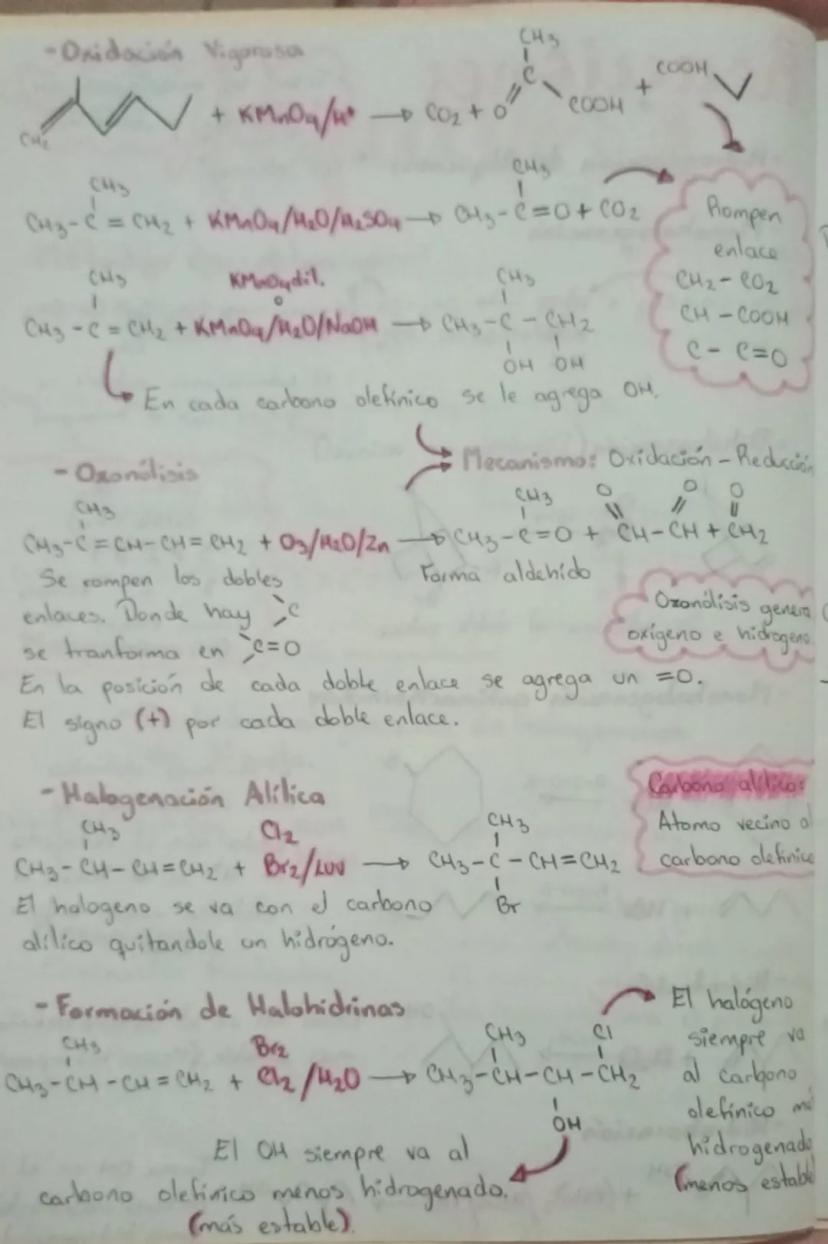 - Oxidación Vigorosa
CH2 + KMnO4/H+ → CO2 + O = C - CH3 COOH + COOH
CH3
CH3 - C = CH2 + KMnO4/H2O/H2SO4 → CH3 - C = O + CO2
CH3
Rompen
enlace
CH2 - CO2
CH - COOH
C - C=O
CH3
KMnO4 dil.
o
CH3
CH3 - C = CH2 + KMnO4/H2O/NaOH → CH3 - C - CH2
OH OH
En cada carbono olefínico se le agrega OH.
Mecanismo: Oxidación - Reducción
- Ozonólisis
CH3
CH3 O O O
CH3 - C = CH - CH = CH2 + O3/H2O/Zn → CH3 - C = O + CH - CH + CH2
Forma aldehido
Se rompen los dobles
enlaces. Donde hay >C
se tranforma en >C=O
Ozonólisis genera
oxígeno e hidrogeno
En la posición de cada doble enlace se agrega un =O.
El signo (+) por cada doble enlace.
- Halogenación Alílica
Carbono alílico:
Atomo vecino al
carbono olefínico
CH3 Cl2 CH3
CH3 - CH - CH = CH2 + Br2/LUV → CH3 - C - CH = CH2
Br
El halogeno se va con el carbono
alílico quitandole un hidrógeno.
- Formación de Halohidrinas
CH3 Br2 CH3 Cl
CH3 - CH - CH = CH2 + Cl2/H2O → CH3 - CH - CH - CH2
OH
El halógeno
siempre va
al carbono
olefínico
hidrogenado
(menos estable
El OH siempre va al
carbono olefinico menos hidrogenado.
(más estable).